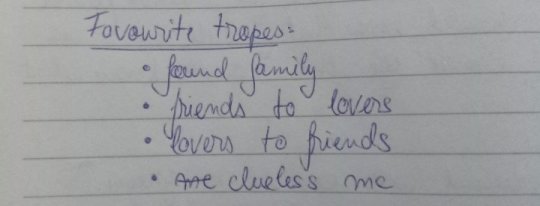 Favourite tropes:
• found family
• friends to lovers
• lovers to friends
• clueless mc